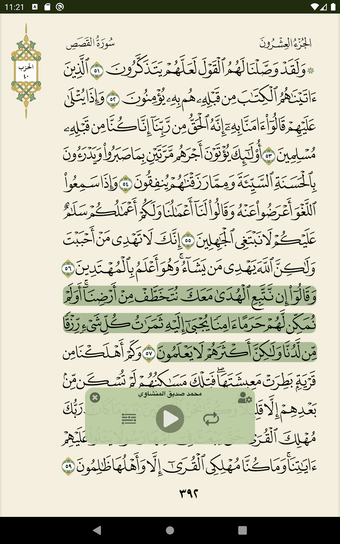 11:21
الجُزْءُ العِشْرُونَ
سُورَةُ القَصَصِ
الحزب
٤٠
۞ وَلَقَدْ وَصَّلْنَا لَهُمُ ٱلْقَوْلَ لَعَلَّهُمْ يَتَذَكَّرُونَ ٥١ ٱلَّذِينَ
ءَاتَيْنَٰهُمُ ٱلْكِتَٰبَ مِن قَبْلِهِۦ هُم بِهِۦ يُؤْمِنُونَ ٥٢ وَإِذَا يُتْلَىٰ
عَلَيْهِمْ قَالُوٓا۟ ءَامَنَّا بِهِۦٓ إِنَّهُ ٱلْحَقُّ مِن رَّبِّنَآ إِنَّا كُنَّا مِن قَبْلِهِۦ
مُسْلِمِينَ ٥٣ أُو۟لَٰٓئِكَ يُؤْتَوْنَ أَجْرَهُم مَّرَّتَيْنِ بِمَا صَبَرُوا۟ وَيَدْرَءُونَ
بِٱلْحَسَنَةِ ٱلسَّيِّئَةَ وَمِمَّا رَزَقْنَٰهُمْ يُنفِقُونَ ٥٤ وَإِذَا سَمِعُوا۟
ٱللَّغْوَ أَعْرَضُوا۟ عَنْهُ وَقَالُوا۟ لَنَآ أَعْمَٰلُنَا وَلَكُمْ أَعْمَٰلُكُمْ سَلَٰمٌ
عَلَيْكُمْ لَا نَبْتَغِى ٱلْجَٰهِلِينَ ٥٥ إِنَّكَ لَا تَهْدِى مَنْ أَحْبَبْتَ
وَلَٰكِنَّ ٱللَّهَ يَهْدِى مَن يَشَآءُ وَهُوَ أَعْلَمُ بِٱلْمُهْتَدِينَ ٥٦
وَقَالُوٓا۟ إِن نَّتَّبِعِ ٱلْهُدَىٰ مَعَكَ نُتَخَطَّفْ مِنْ أَرْضِنَآ أَوَلَمْ
نُمَكِّن لَّهُمْ حَرَمًا ءَامِنًا يُجْبَىٰٓ إِلَيْهِ ثَمَرَٰتُ كُلِّ شَىْءٍ رِّزْقًا
مِّن لَّدُنَّا وَلَٰكِنَّ أَكْثَرَهُمْ لَا يَعْلَمُونَ ٥٧ وَكَمْ أَهْلَكْنَا مِن
قَرْيَةٍۭ بَطِرَتْ مَعِيشَتَهَا فَتِلْكَ مَسَٰكِنُهُمْ لَمْ تُسْكَن مِّنۢ
محمد صديق المنشاوي
بَعْدِهِمْ إِلَّا
رَبُّكَ
مُهْلِكَ ٱلْقُرَىٰ
عَلَيْهِمْ
ءَايَٰتِنَا وَمَا كُنَّا مُهْلِكِى ٱلْقُرَىٰٓ إِلَّا وَأَهْلُهَا ظَٰلِمُونَ ٥٩
٣٩٢